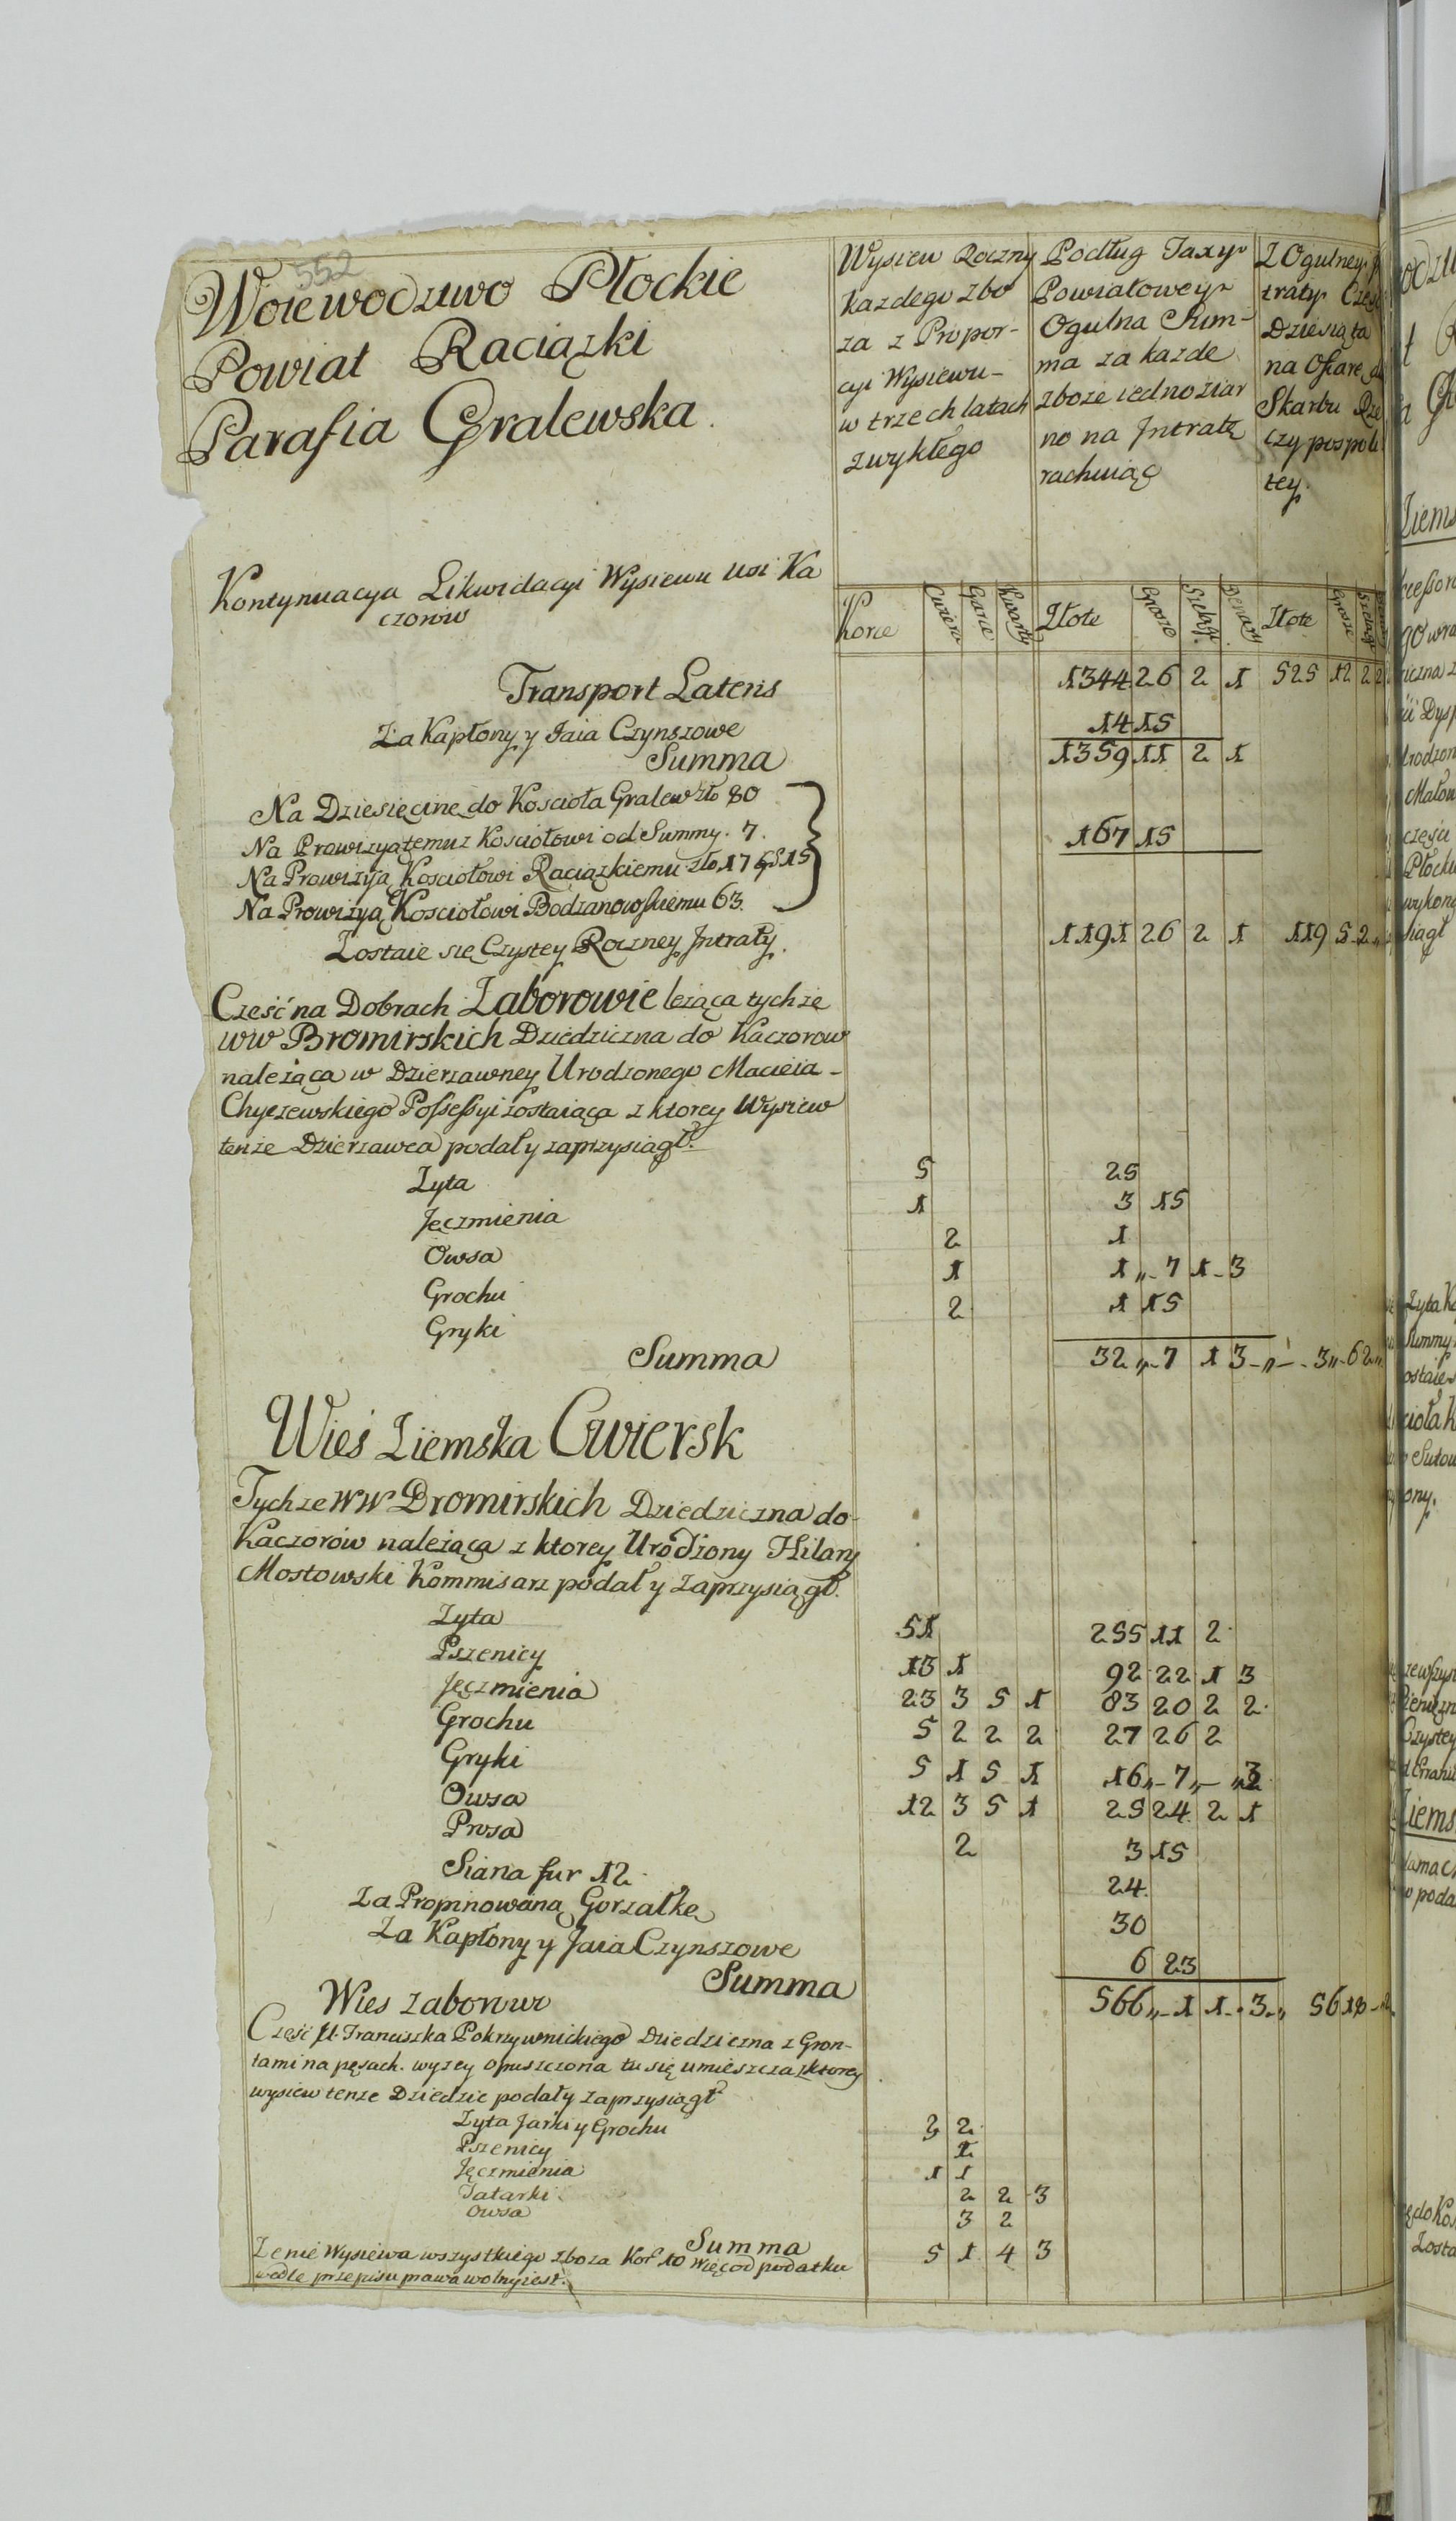 552
Woiewodztwo Płockie
Powiat Raciązki
Parafia Gralewska.
Wysiew Roczny
Kazdego zbo
za z Propor-
cyi Wysiewu-
w trzech latach
zwykłego
Podług Taxy
Powiatowey
Ogulna Sum-
ma za kazde
zboze iedno ziar
no na Jntratę
rachuiąc
Z Ogulney
traty Częśc
Dziesiąta
na Ofiarę
Skarbu Rze
czypospoli
tey.
Kontynuacya Likwidacyi Wysiewu wsi Ka
czorow
Korce Cwierci Garce Kwarty Złote Grosze Szelągi Denary Złote Grosze Szelągi
Transport Lateris 1344 26 2 1 525 12 2 2
Za Kapłony y Jaia Czynszowe 14 15
Summa 1359 11 2 1
Na Dziesięcinę do Kościoła Gralew zło 80
Na Prowizyą temuz Kościołowi od Summy. 7.
Na Prowizyą Kościołowi Raciązkiemu zło 17 gr 15
Na Prowizyą Kościołowi Bodzanowskiemu 63.
167 15
Zostaie się Czystey Roczney Jntraty. 1191 26 2 1 119 5 2
Cześć na Dobrach Zaborowie leząca tychze
WW Bromirskich Dziedziczna do Kaczorow
nalezącą w Dzierzawney Urodzonego Macieia-
Chyczewskiego Possessyi zostaiąca z ktorey Wysiew
tenze Dzierzawca podał y zaprzysiągł.
Zyta 5 25
Jęczmienia 1 3 15
Owsa 2 1
Grochu 1 1 „ 7 1 3
Gryki 2 1 15
Summa 32 „ 7 1 3 „ 3 „ 6 2 „
Wieś Ziemska Cwiersk
Tychze WW Bromirskich Dziedziczna do
Kaczorów nalezącą z ktorey Urodzony Hilary
Mostowski Kommisarz podał y zaprzysiągł.
Zyta 51 255 11 2
Pszenicy 13 1 92 22 1 3
Jęczmienia 23 3 5 1 83 20 2 2
Grochu 5 2 2 2 27 26 2
Gryki 5 1 5 1 16 „ 7 „ „
Owsa 12 3 5 1 25 24 2 1
Prosa 2 3 15
Siana fur 12 24
Za Propinowaną Gorzałkę 30
Za Kapłony y Jaia Czynszowe 6 23
Summa 566 „ 1 1 3 „ 56 18
Wies Zaborowo
Cześć Franciszka Pokrzywnickiego Dziedziczna z Gron-
tami na pęsach. wyzey opuszczona tu się umieszcza z ktorey
wysiew tenze Dziedzic podał y zaprzysiągł
Zyta Jarki y Grochu 2 2
Pszenicy 1
Jęczmienia 1 1
Tatarki 2 2 3
Owsa 3 2
Summa 5 1 4 3
Ze nie Wysiewa wszystkiego zboza Kor 10 więc od podatku
wedle przepisu prawa wolny iest.